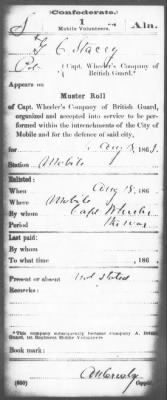 (Confederate.)
S 1 Ala.
Mobile Volunteers.
G C Stacey
Pvt (Capt. Wheeler's Company of
British Guard.*
Appears on
Muster Roll
of Capt. Wheeler's Company of British Guard,
organized and accepted into service to be performed
within the intrenchments of the City of
Mobile and for the defence of said city,
for Aug 18, 1863.
Station Mobile
Enlisted:
When Aug 18, 186
Where Mobile
By whom Capt Wheeler
Period the war
Last paid:
By whom
To what time , 186
Present or absent Not stated
Remarks:
*This company subsequently became Company A,
Guard, 1st Regiment Mobile Volunteers
Book mark:
(650) Copyist.